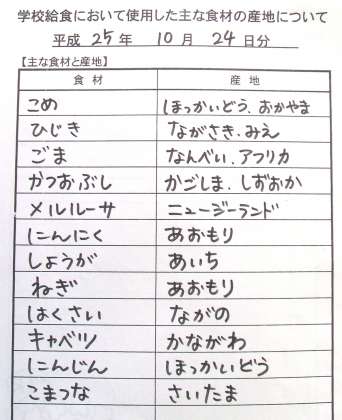 学校給食において使用した主な食材の産地について
平成 25年 10月 24日分
【主な食材と産地】
食材 産地
こめ ほっかいどう、おかやま
ひじき ながさき、みえ
ごま なんべい、アフリカ
かつおぶし かごしま、しずおか
メルルーサ ニュージーランド
にんにく あおもり
しょうが あいち
ねぎ あおもり
はくさい ながの
キャベツ かながわ
にんじん ほっかいどう
こまつな さいたま